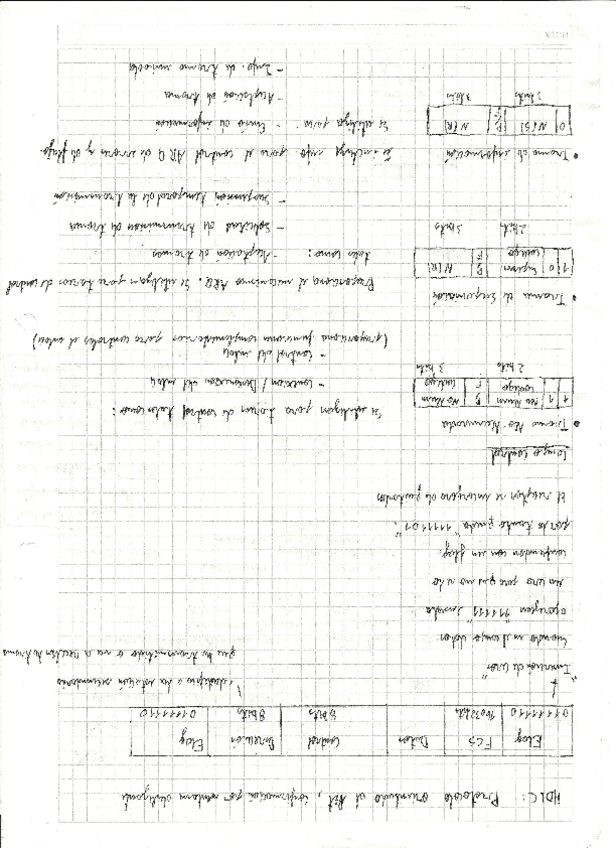 HDLC: Protocolo orientado al bit, confirmación por ventana deslizante
Flag FCS Datos Control Dirección Flag
01111110 16 o 32 bits 8 bits 8 bits 01111110
"Inserción de ceros"
identifica a la estación secundaria
que ha transmitido o va a recibir la trama
Cuando el campo datos
aparezcan "11111" inserta
un cero para que no se lo
confunda con un flag.
por lo tanto queda "1111101".
El receptor se encargara de quitarlos
Campo control
• Trama No Numerada
1 1 No Num código P/F No Num código
2 bits 3 bits
Se utilizan para tareas de control tales como:
- Conexión / Desconexion del enlace
- Control del enlace
(proporciona funciones complementarias para controlar el enlace)
• Trama de Supervisión
1 0 Superv. código P/F N(R)
2 bits 3 bits
Proporciona el mecanismo ARQ. Se utilizan para tareas de control
tales como: - Aceptación de tramas
- Solicitud de transmision de trama
- Suspensión temporal de la transmisión
• Trama de información
0 N(S) P/F N(R)
3 bits 3 bits
Se incluye info para el control ARQ de errores y de flujo
Se utiliza para - Envío de información
- Aceptación de trama
- Info. de trama enviada